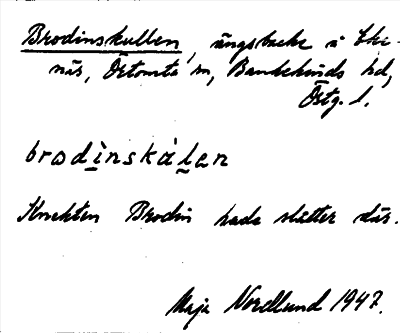 Brodinskullen, ängsbacke å Ske-
när, Örtomta sn, Bankekinds hd,
Östg. l.
brodinskàlen
Knekten Brodin hade slåtter där.
Maja Nordlund 1947.